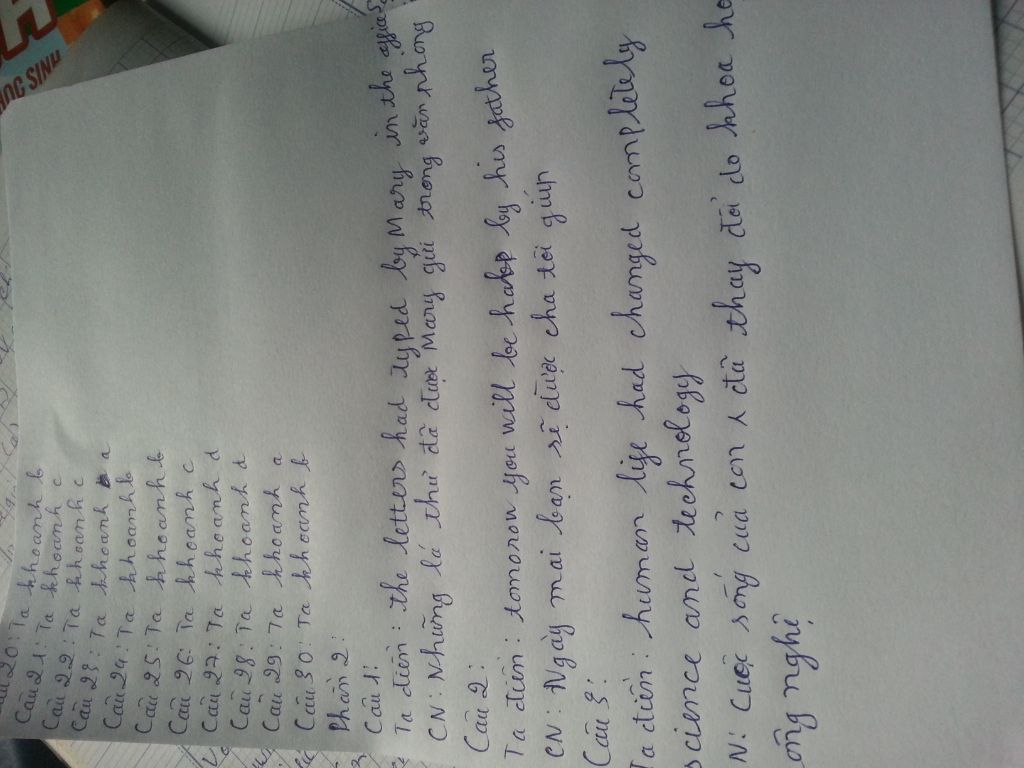 HỌC SINH
Câu 20: Ta khoanh b
Câu 21: Ta khoanh c
Câu 22: Ta khoanh c
Câu 23: Ta khoanh a
Câu 24: Ta khoanh b
Câu 25: Ta khoanh b
Câu 26: Ta khoanh c
Câu 27: Ta khoanh d
Câu 28: Ta khoanh d
Câu 29: Ta khoanh a
Câu 30: Ta khoanh b
Phần 2:
Câu 1:
Ta điền: the letters had typed by Mary in the
CN: Những lá thư đã được Mary gửi trong văn phòng
Câu 2:
Ta điền: tomorow you will be by his father
CN: Ngày mai bạn sẽ được cha tôi giúp
Câu 3:
Ta điền: human life had changed completely
science and technology
N: Cuộc sống của con n đã thay đổi do khoa họ
ông nghệ